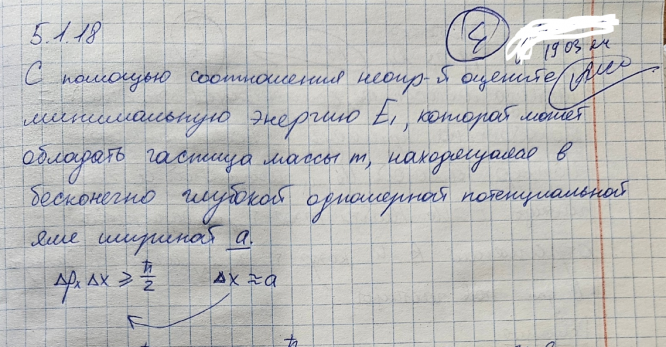 5.1.18
4
19.03.24
С помощью соотношения неопр-й оцените
минимальную энергию E₁, которой может
обладать частица массы m, находящаяся в
бесконечно глубокой одномерной потенциальной
яме шириной a.
Δpₓ Δx ≥ ħ/2 Δx ≈ a